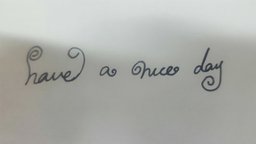 have a nice day